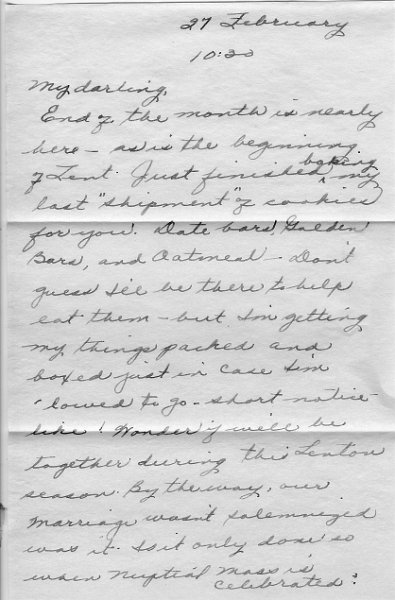 27 February
10:30
My darling,
End of the month is nearly
here - as is the beginning
of Lent. Just finished baking my
last "shipment" of cookies
for you. Date bars, Golden
Bars, and Oatmeal - Don't
guess I'll be there to help
eat them - but I'm getting
my things packed and
boxed just in case I'm
'lowed to go - short notice
like! Wonder if will be
together during this Lenton
season. By the way, our
marriage wasn't solemnized
was it. Is it only done so
when Nuptial Mass is
celebrated?